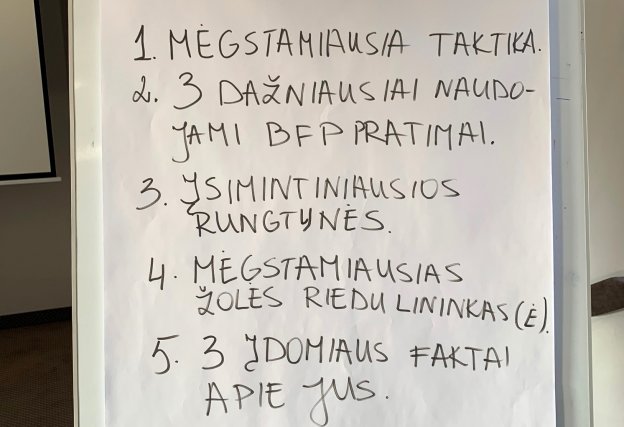 1. MĖGSTAMIAUSIA TAKTIKA.
2. 3 DAŽNIAUSIAI NAUDO-
JAMI BFP PRATIMAI.
3. ĮSIMINTINIAUSIOS
RUNGTYNĖS.
4. MĖGSTAMIAUSIAS
ŽOLĖS RIEDULININKAS(Ė).
5. 3 ĮDOMIAUS FAKTAI
APIE JUS.